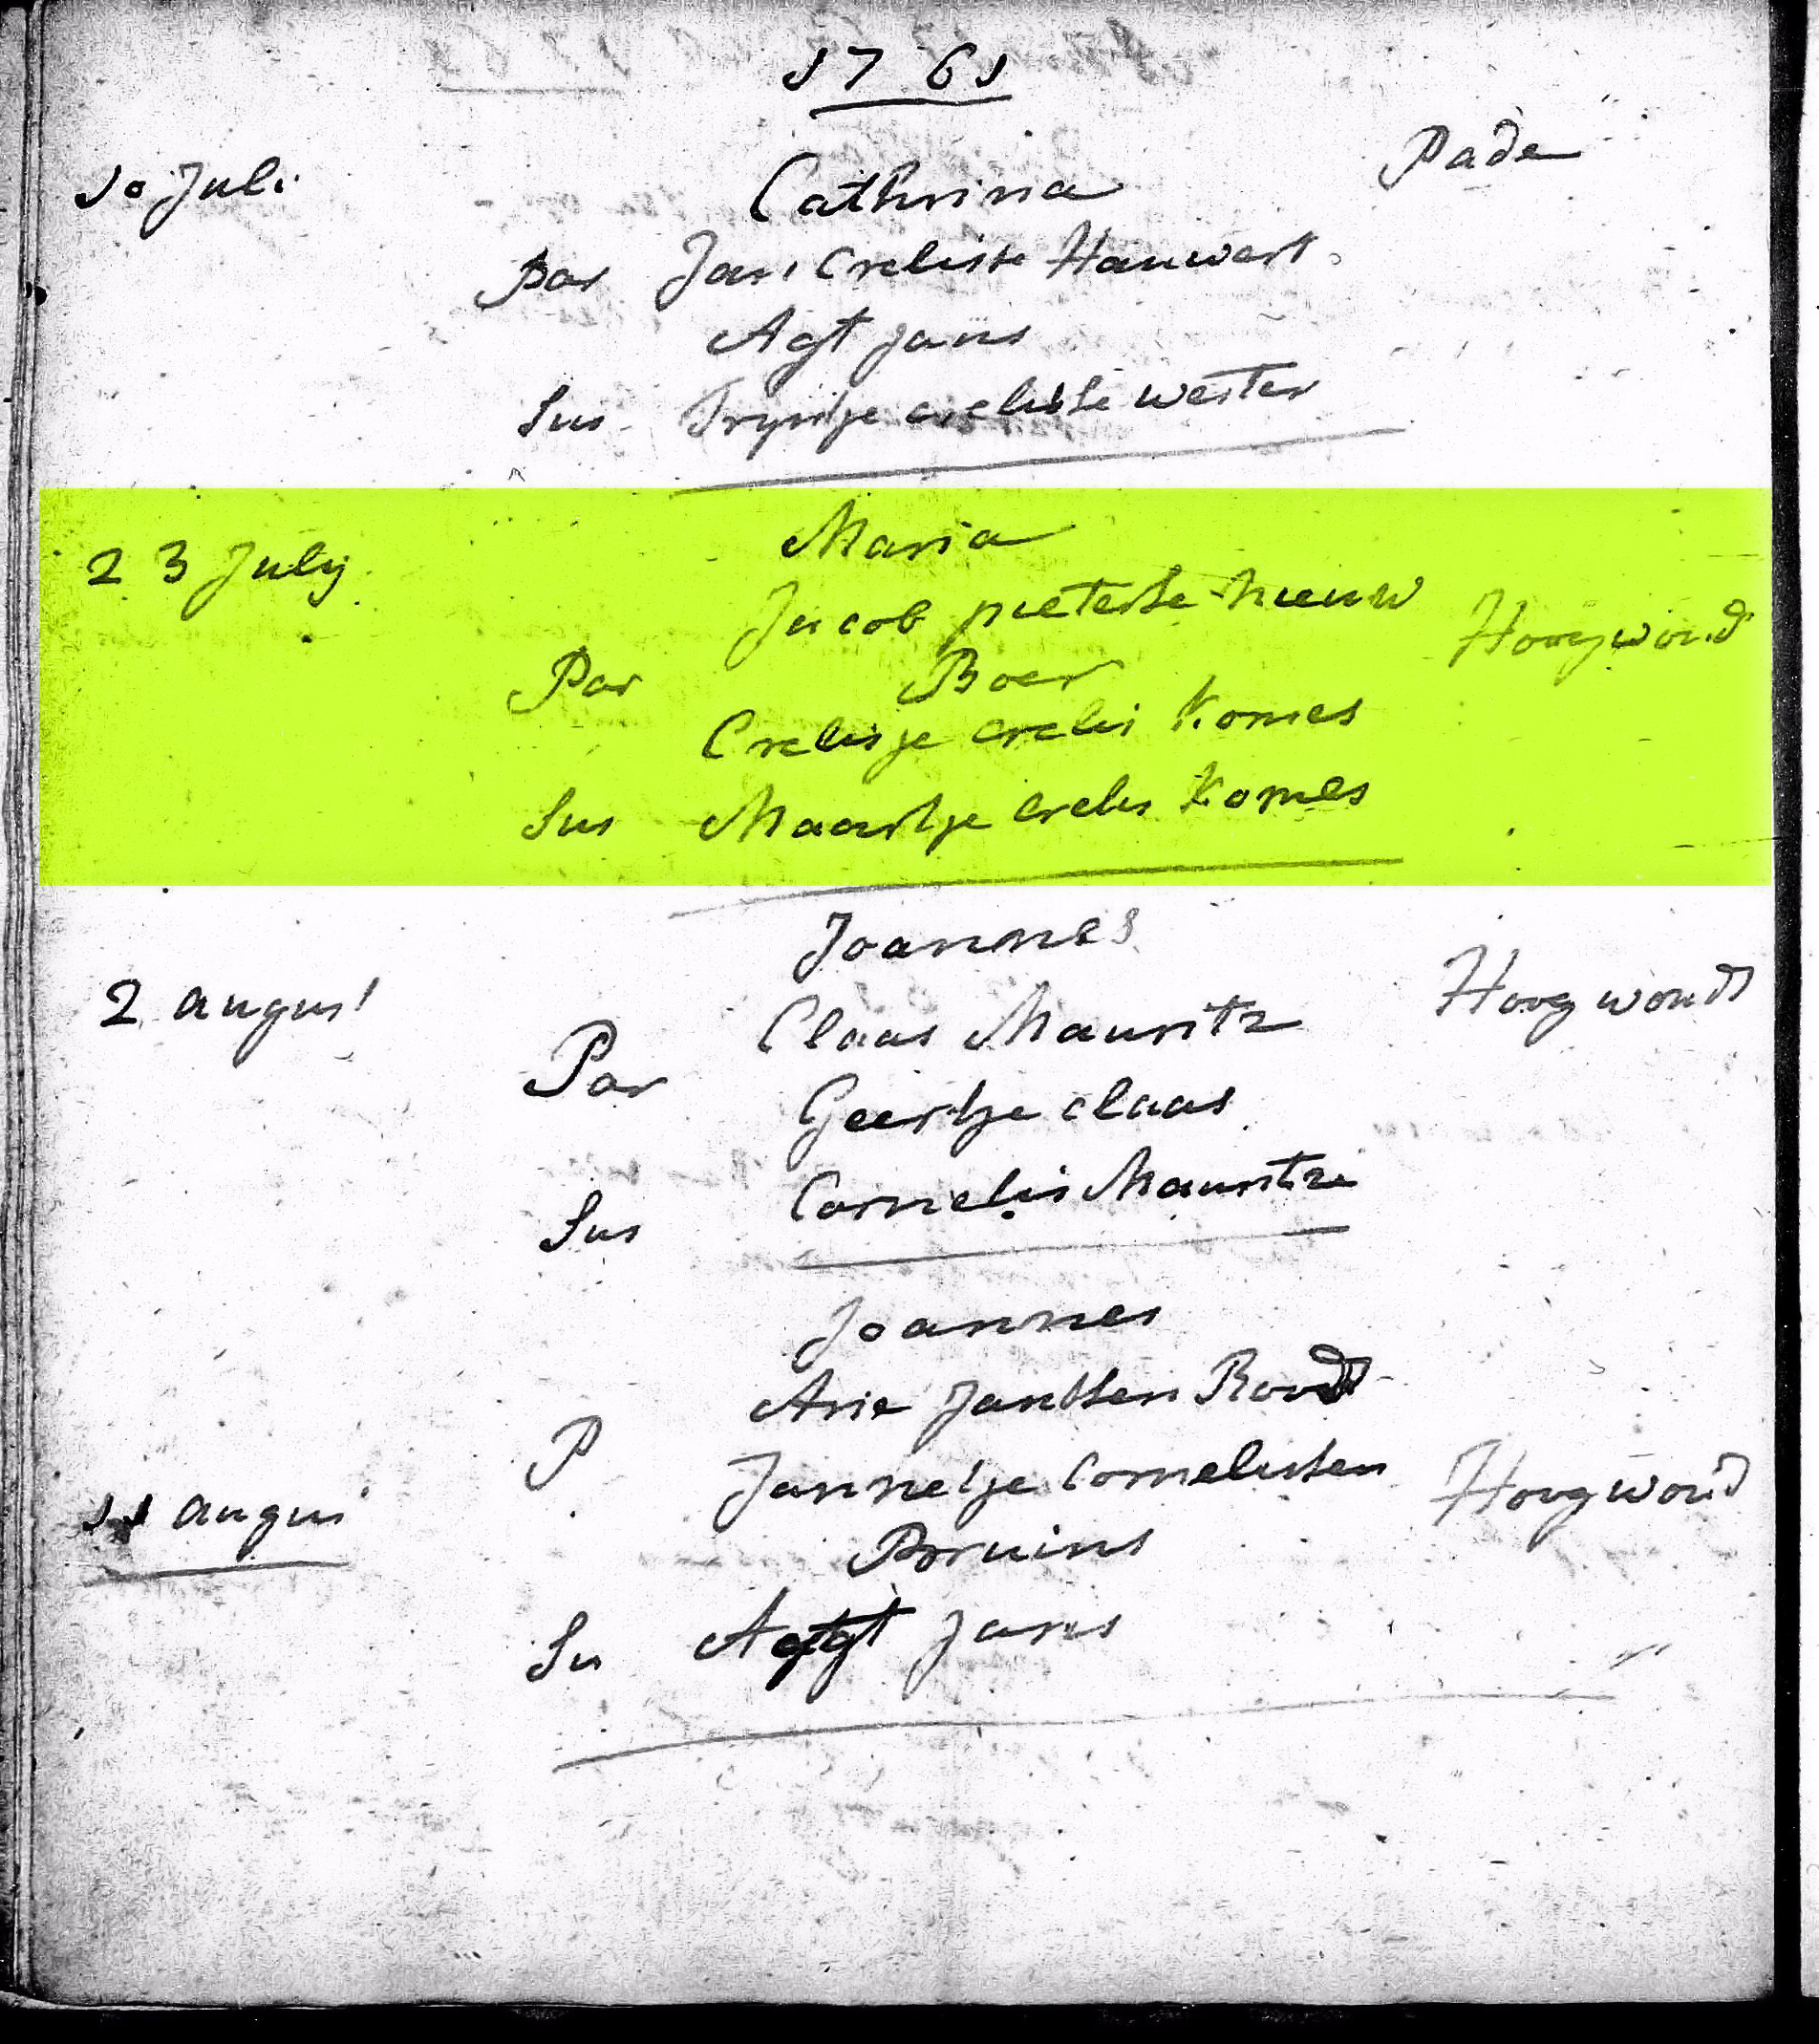 1761
10 Juli Cathrina Pade
Par Jan Crelisse Hauwert
Agt jans
Sus Tryntje crelisse wester
Maria
23 July Jacob pieterse nieuw Hoogwoud
Par Boer
Crelisje crelis Komes
Sus Maartje crelis Komes
Joannes
2 augus Claas Mauritz Hoogwoud
Par
Geertje claas
Sus Cornelis Mauritze
Joannes
Arie Janssen Rood
P Jannetje Cornelissen Hoogwoud
11 augus
Bruins
Su Agt Jans